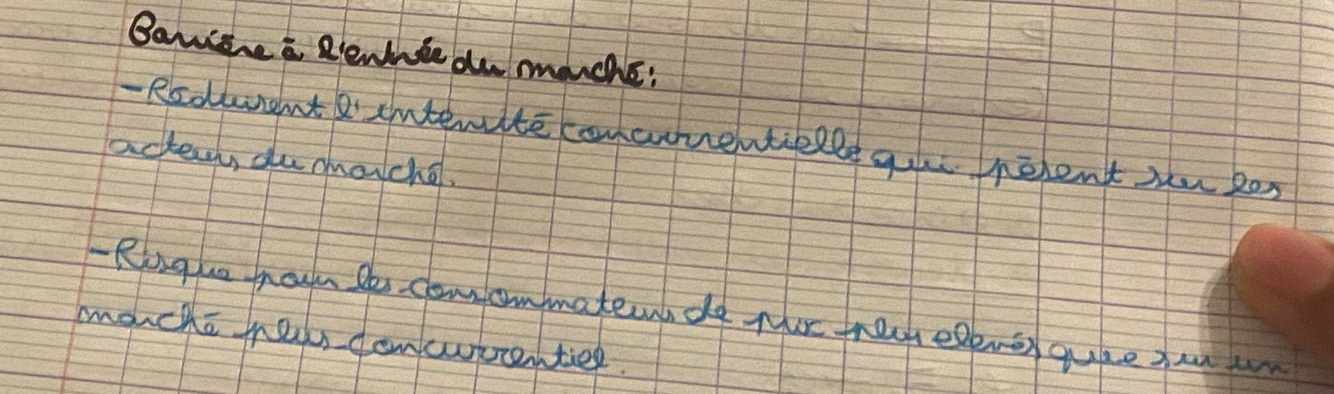 Barrière à l'entrée du marché :
- Réduisent l'intensité concurrentielle qui pèsent sur les
acteurs du marché.
- Risque pour les consommateurs de prix plus elevés que sur un
marché plus concurrentiel.